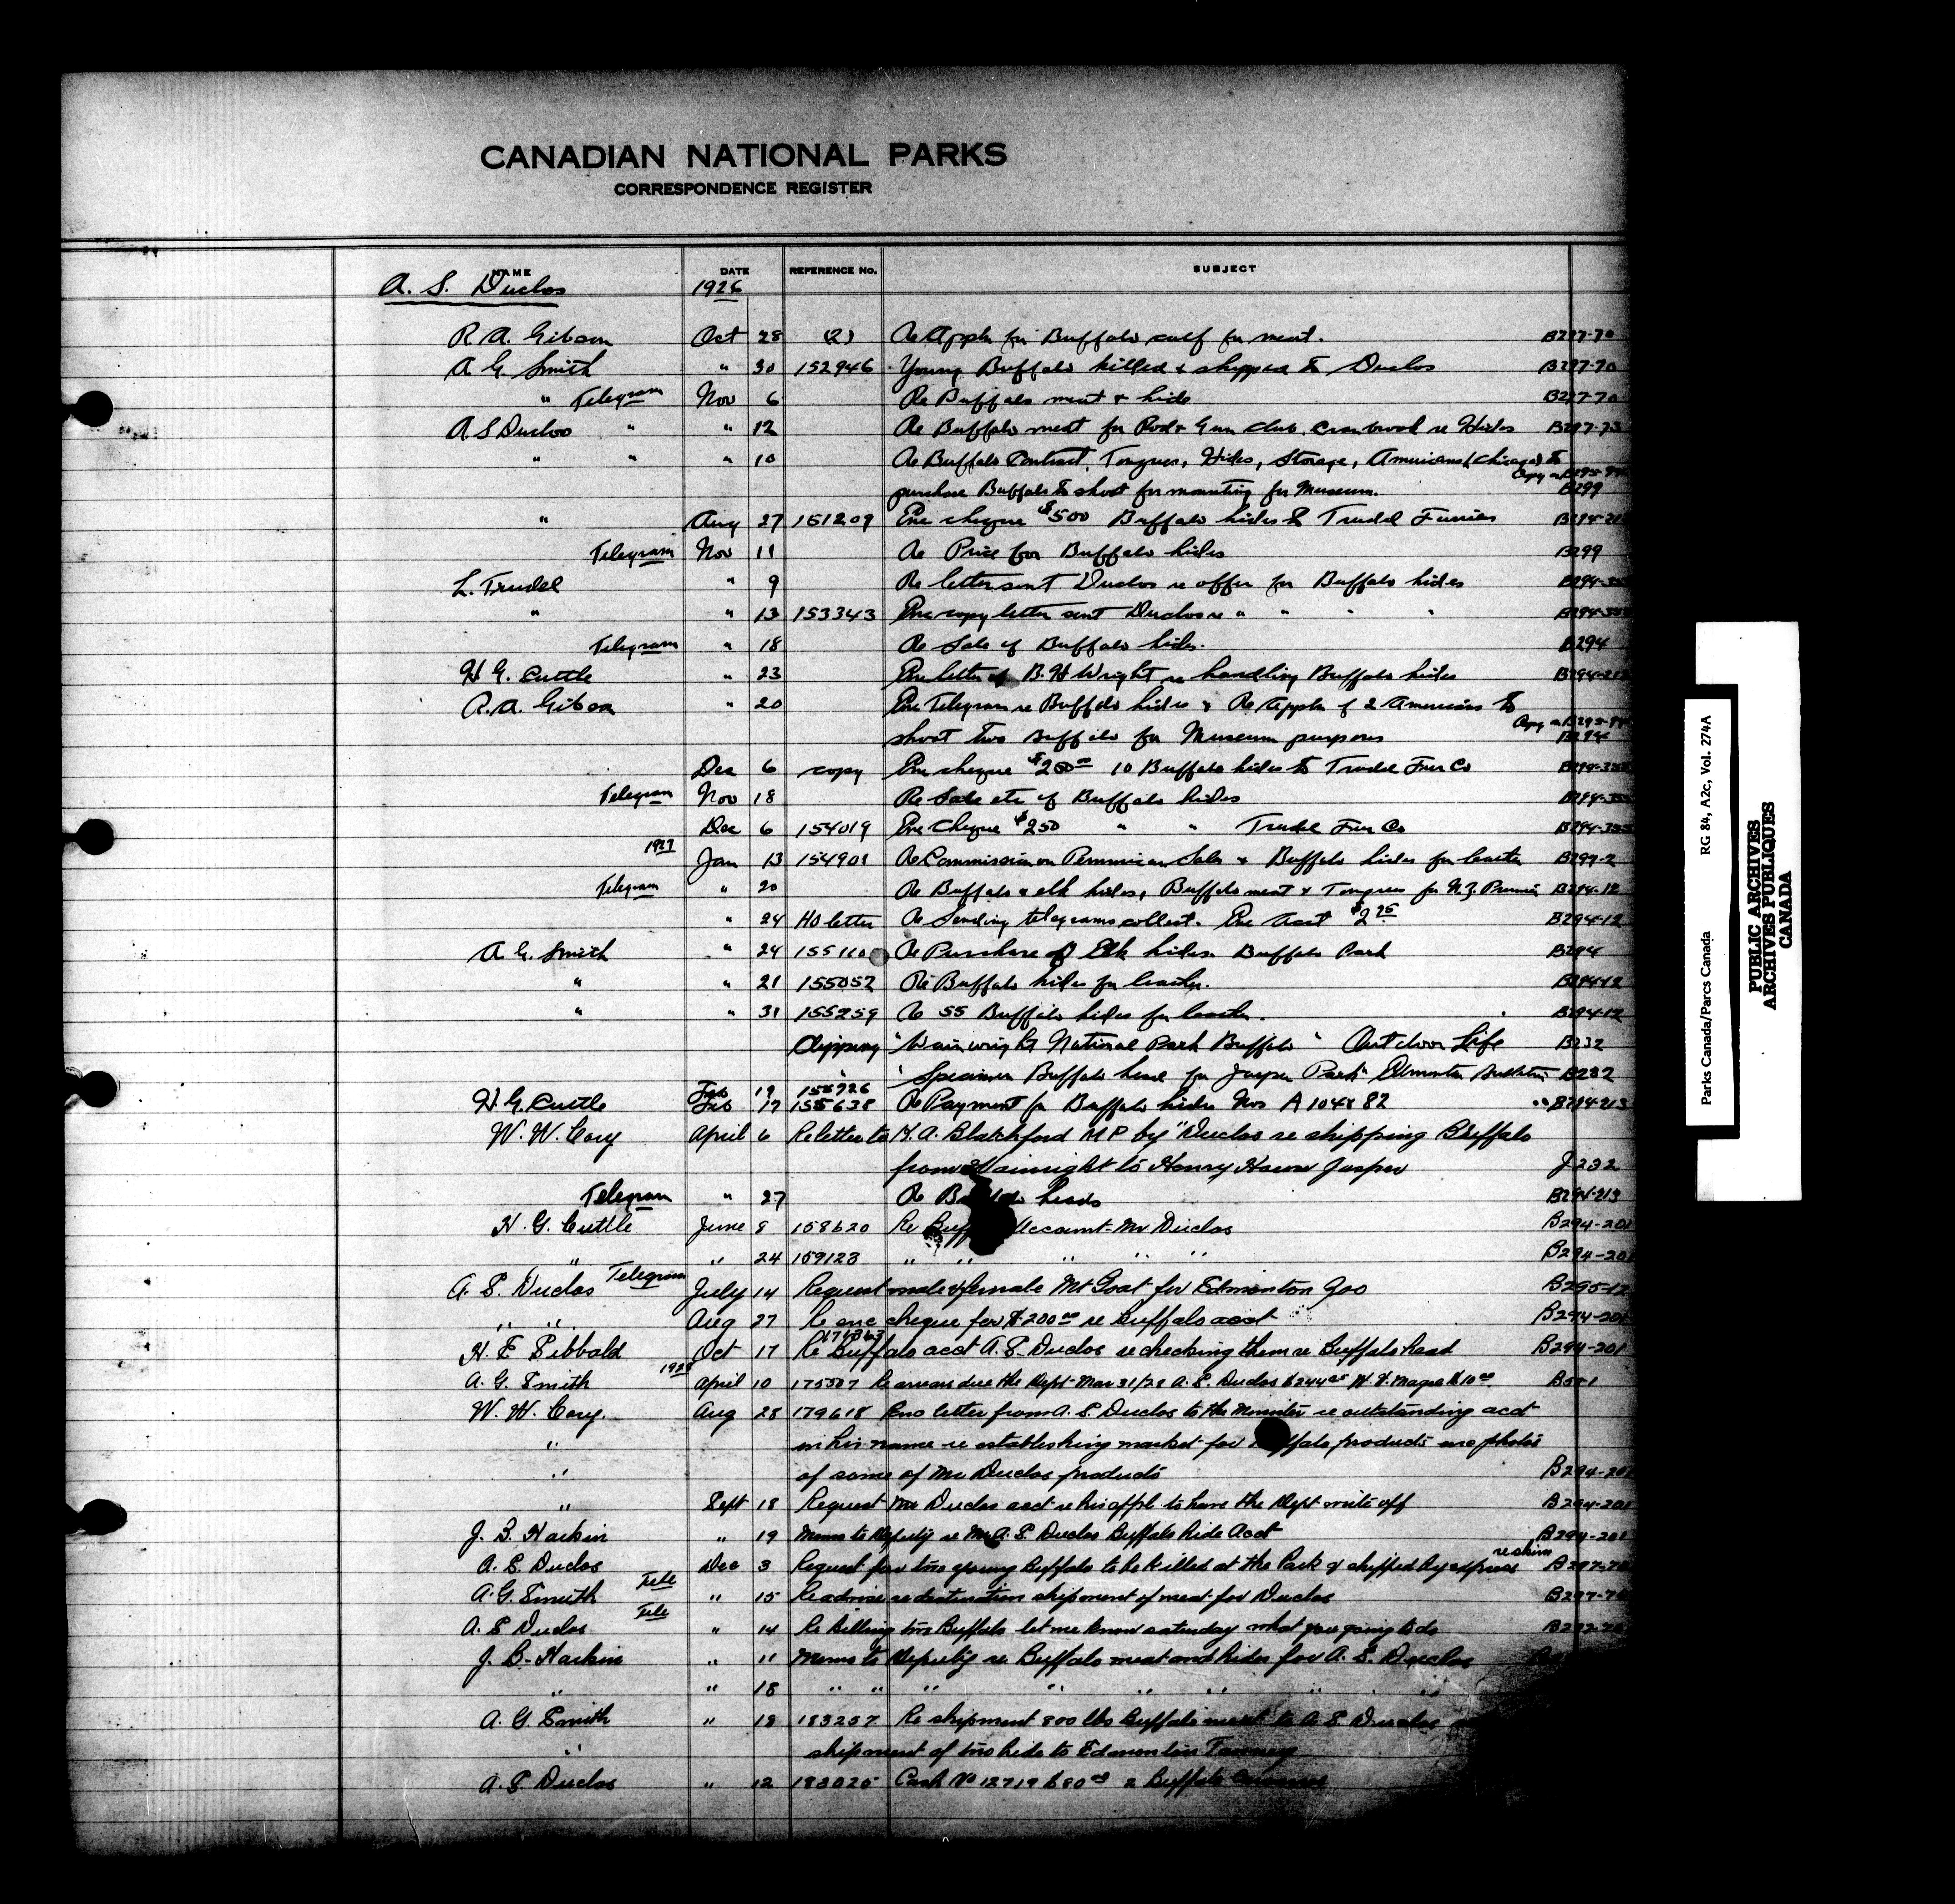 CANADIAN NATIONAL PARKS
CORRESPONDENCE REGISTER
NAME DATE REFERENCE No. SUBJECT
A. S. Duclos 1926
R. A. Gibson Oct 28 (2) Re Appln for Buffalo calf for meat. B297-70
A G. Smith " 30 152946 Young Buffalo killed & shipped to Duclos B297-70
" Telegram Nov 6 Re Buffalo meat & hide B297-70
A. S Duclos " " 12 Re Buffalo meat for Rod & Gun Club, Cranbrook re Hides B297-73
" " " 10 Re Buffalo Contract, Tongues, Hides, Storage, Americans (Chicago) to
Copy on B295-
purchase Buffalo to shoot for mounting for Museum. B299
" Aug 27 151209 Enc cheque $500 Buffalo hides to Trudel Furries B294-
Telegram Nov 11 Re Price for Buffalo hides B299
L. Trudel " 9 Re letter sent Duclos re offer for Buffalo hides B294-
" " 13 153343 Enc copy letter sent Duclos re " " " " B294-
Telegram " 18 Re Sale of Buffalo hides. B294
H G. Cuttle " 23 Enc letter of B. H Wright re handling Buffalo hides B294-213
R. A. Gibson " 20 Enc Telegram re Buffalo hides & Re Appln of 2 Americans to
Copy on B295-
shoot two Buffalo for Museum purposes B294
Dec 6 copy Enc cheque $250 00 10 Buffalo hides to Trudel Fur Co B294-
Telegram Nov 18 Re Sale etc of Buffalo hides B294-
Dec 6 154019 Enc Cheque $250 " " Trudel Fur Co B294-
1927 Jan 13 154901 Re Commission on Pemmican Sales & Buffalo hides for leather B299-2
Telegram " 20 Re Buffalo & elk hides, Buffalo meat & Tongues for N. Z. Premier B294-12
" 24 HO letter Re Sending telegrams collect. Enc acct $2 75 B294-12
A G. Smith " 24 155110 Re Purchase of Elk hides. Buffalo Park B294
" " 21 155052 Re Buffalo hides for leather. B294-12
" " 31 155259 Re 55 Buffalo hides for leather. B294-12
Clipping "Wainwright National Park Buffalo" Outdoor Life B232
" "Specimen Buffalo head for Jasper Park" Edmonton Bulletin B232
Feb 19 155926
H. G. Cuttle Feb 17 155638 Re Payment for Buffalo hides Nos A 104 & 82 B294-213
W. W. Cory April 6 Re letter to K. A. Blatchford M P by Duclos re shipping Buffalo
from Wainright to Henry House Jasper J232
Telegram " 27 Re Buffalo heads B294-213
H. G. Cuttle June 8 158620 Re Buff Account Mr Duclos B294-201
" " 24 159123 " " " " " B294-201
A. S. Duclos Telegram July 14 Request male & female Mt Goat for Edmonton Zoo B295-12
" " Aug 27 Re enc cheque for $200 00 re Buffalo acct B294-201
171363
H. E. Sibbald Oct 17 Re Buffalo acct A. S. Duclos re checking them re Buffalo head B294-201
1928
A. G. Smith April 10 175307 Re arrears due the Dept Mar 31/28 A. S. Duclos $244 W. H. Magee $10 00
W. W. Cory. Aug 28 179618 Enc letter from A. S. Duclos to the Minister re outstanding acct
" in his name re establishing market for Buffalo products enc photos
" of some of Mr Duclos products B294-201
" Sept 18 Request Mr Duclos acct re his appl to have the Dept write off B294-201
J. B. Harkin " 19 Memo to Deputy re Mr A. S. Duclos Buffalo Hide Acct B294-201
re skins
A. S. Duclos Dec 3 Request for two young Buffalo to be killed at the Park & shipped by express B297-70
A. G. Smith Tele " 15 Re advise re destination shipment of meat for Duclos B297-70
A. S Duclos Tele " 14 Re killing two Buffalo let me know saturday what you going to do
J. B. Harkin " 11 Memo to Deputy re Buffalo meat and hides for A. S. Duclos
" " 18 " " " " " " " "
A. G. Smith " 18 183257 Re shipment 800 lbs Buffalo meat to A. S. Duclos
" shipment of two hides to Edmonton Tannery
A. S. Duclos " 12 183025 Cash No 12719 $80 00 2 Buffalo
Parks Canada/Parcs Canada RG 84, A2c, Vol. 274A
PUBLIC ARCHIVES
ARCHIVES PUBLIQUES
CANADA